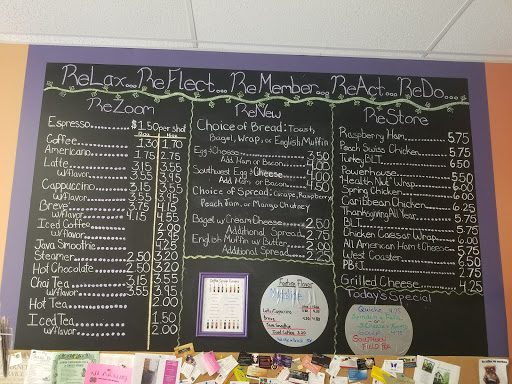 ReLax... ReFlect... ReMember... ReAct... ReDo...
ReZoom
Espresso........ $1.50 per shot
Coffee........ 1.30 1.70
Americano.... 1.75 2.75
Latte........ 3.15 3.55
w/flavor.... 3.55 3.95
Cappuccino.... 3.15 3.55
w/flavor.... 3.55 3.95
Breve........ 3.75 4.15
w/flavor.... 4.15 4.55
Iced Coffee........ 2.00
w/flavor
Java Smoothie........ 4.25
Steamer........ 2.50 3.20
Hot Chocolate.... 2.50 3.20
Chai Tea........ 3.15 3.55
w/flavor.... 3.55 3.95
Hot Tea........ 2.00
Iced Tea........ 1.50
w/flavor........ 2.00
ReNew
Choice of Bread: Toast,
Bagel, Wrap, or English Muffin
Egg & Cheese........ 3.50
Add Ham or Bacon.... 4.00
Southwest Egg & Cheese.... 4.00
Add Ham or Bacon.... 4.50
Choice of Spread: Grape, Raspberry
Peach Jam, or Mango Chutney
Bagel w/ Cream Cheese.... 2.50
Additional Spread.... 2.75
English Muffin w/ Butter.... 2.00
Additional Spread.... 2.25
ReStore
Raspberry Ham........ 5.75
Peach Swiss Chicken.... 5.75
Turkey BLT........ 6.50
Powerhouse........ 5.50
Health Nut Wrap.... 6.00
Spring Chicken.... 6.00
Caribbean Chicken.... 6.25
Thanksgiving All Year.... 5.75
BLT........ 5.75
Chicken Caesar Wrap.... 6.00
All American Ham & Cheese.... 5.75
West Coaster........ 5.50
PB & J........ 2.75
Grilled Cheese........ 4.25
Today's Special
Quiche 4.25